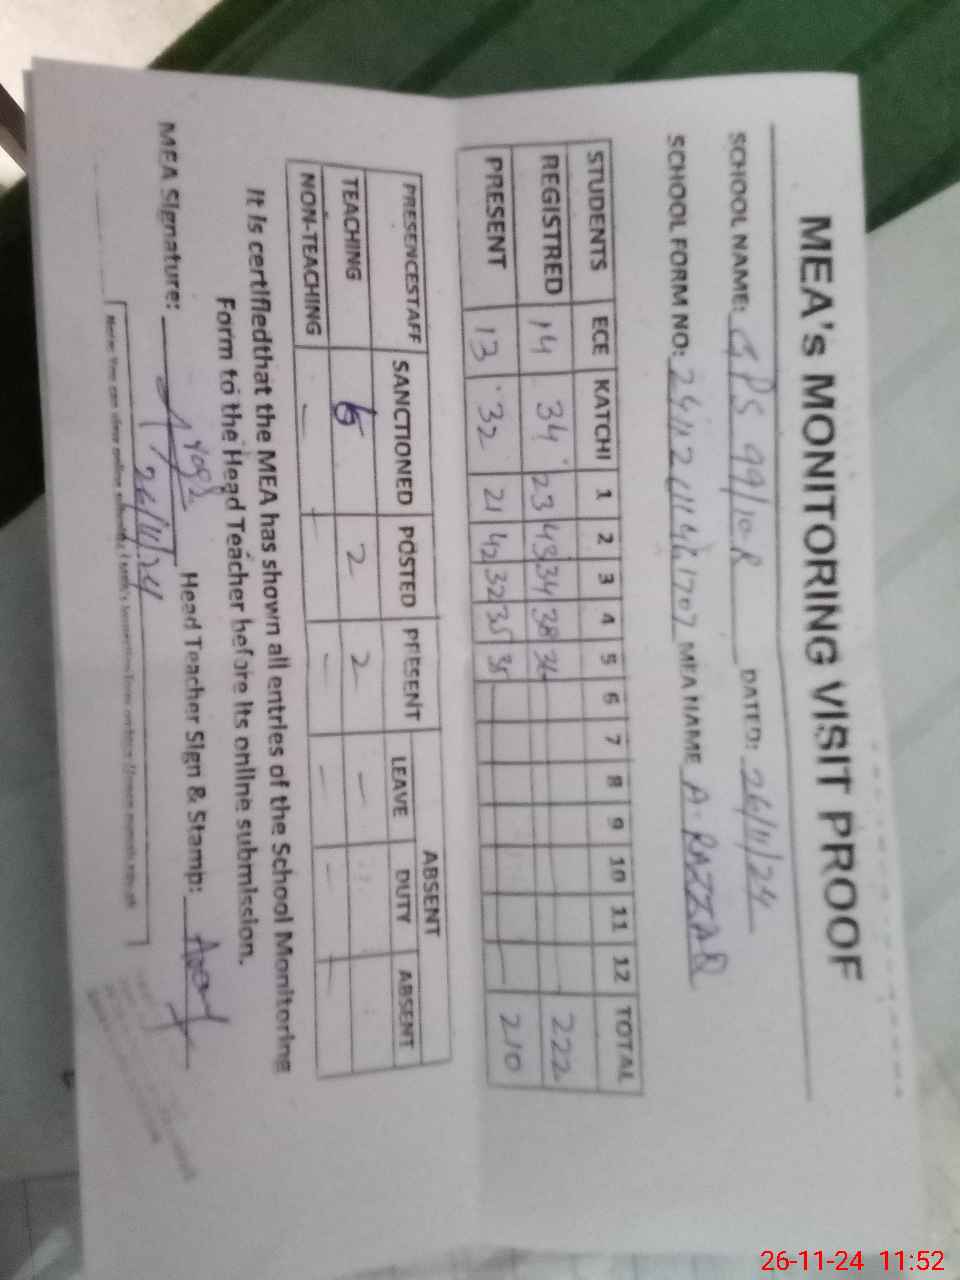 MEA's MONITORING VISIT PROOF
SCHOOL NAME: GPS 99/10R DATED: 26/11/24
SCHOOL FORM NO: MEA NAME A. RAZZAQ
STUDENTS ECE KATCHI 1 2 3 4 5 6 7 8 9 10 11 12 TOTAL
REGISTRED 14 34 23 43 34 38 36 222
PRESENT 13 32 21 42 32 35 35 210
ABSENT
PRESENCESTAFF SANCTIONED POSTED PRESENT LEAVE DUTY ABSENT
TEACHING 2 2 -
NON-TEACHING - - - - - -
It is certifiedthat the MEA has shown all entries of the School Monitoring
Form to the Head Teacher before its online submission.
MEA Signature: Head Teacher Sign & Stamp:
26/11/24
26-11-24 11:52